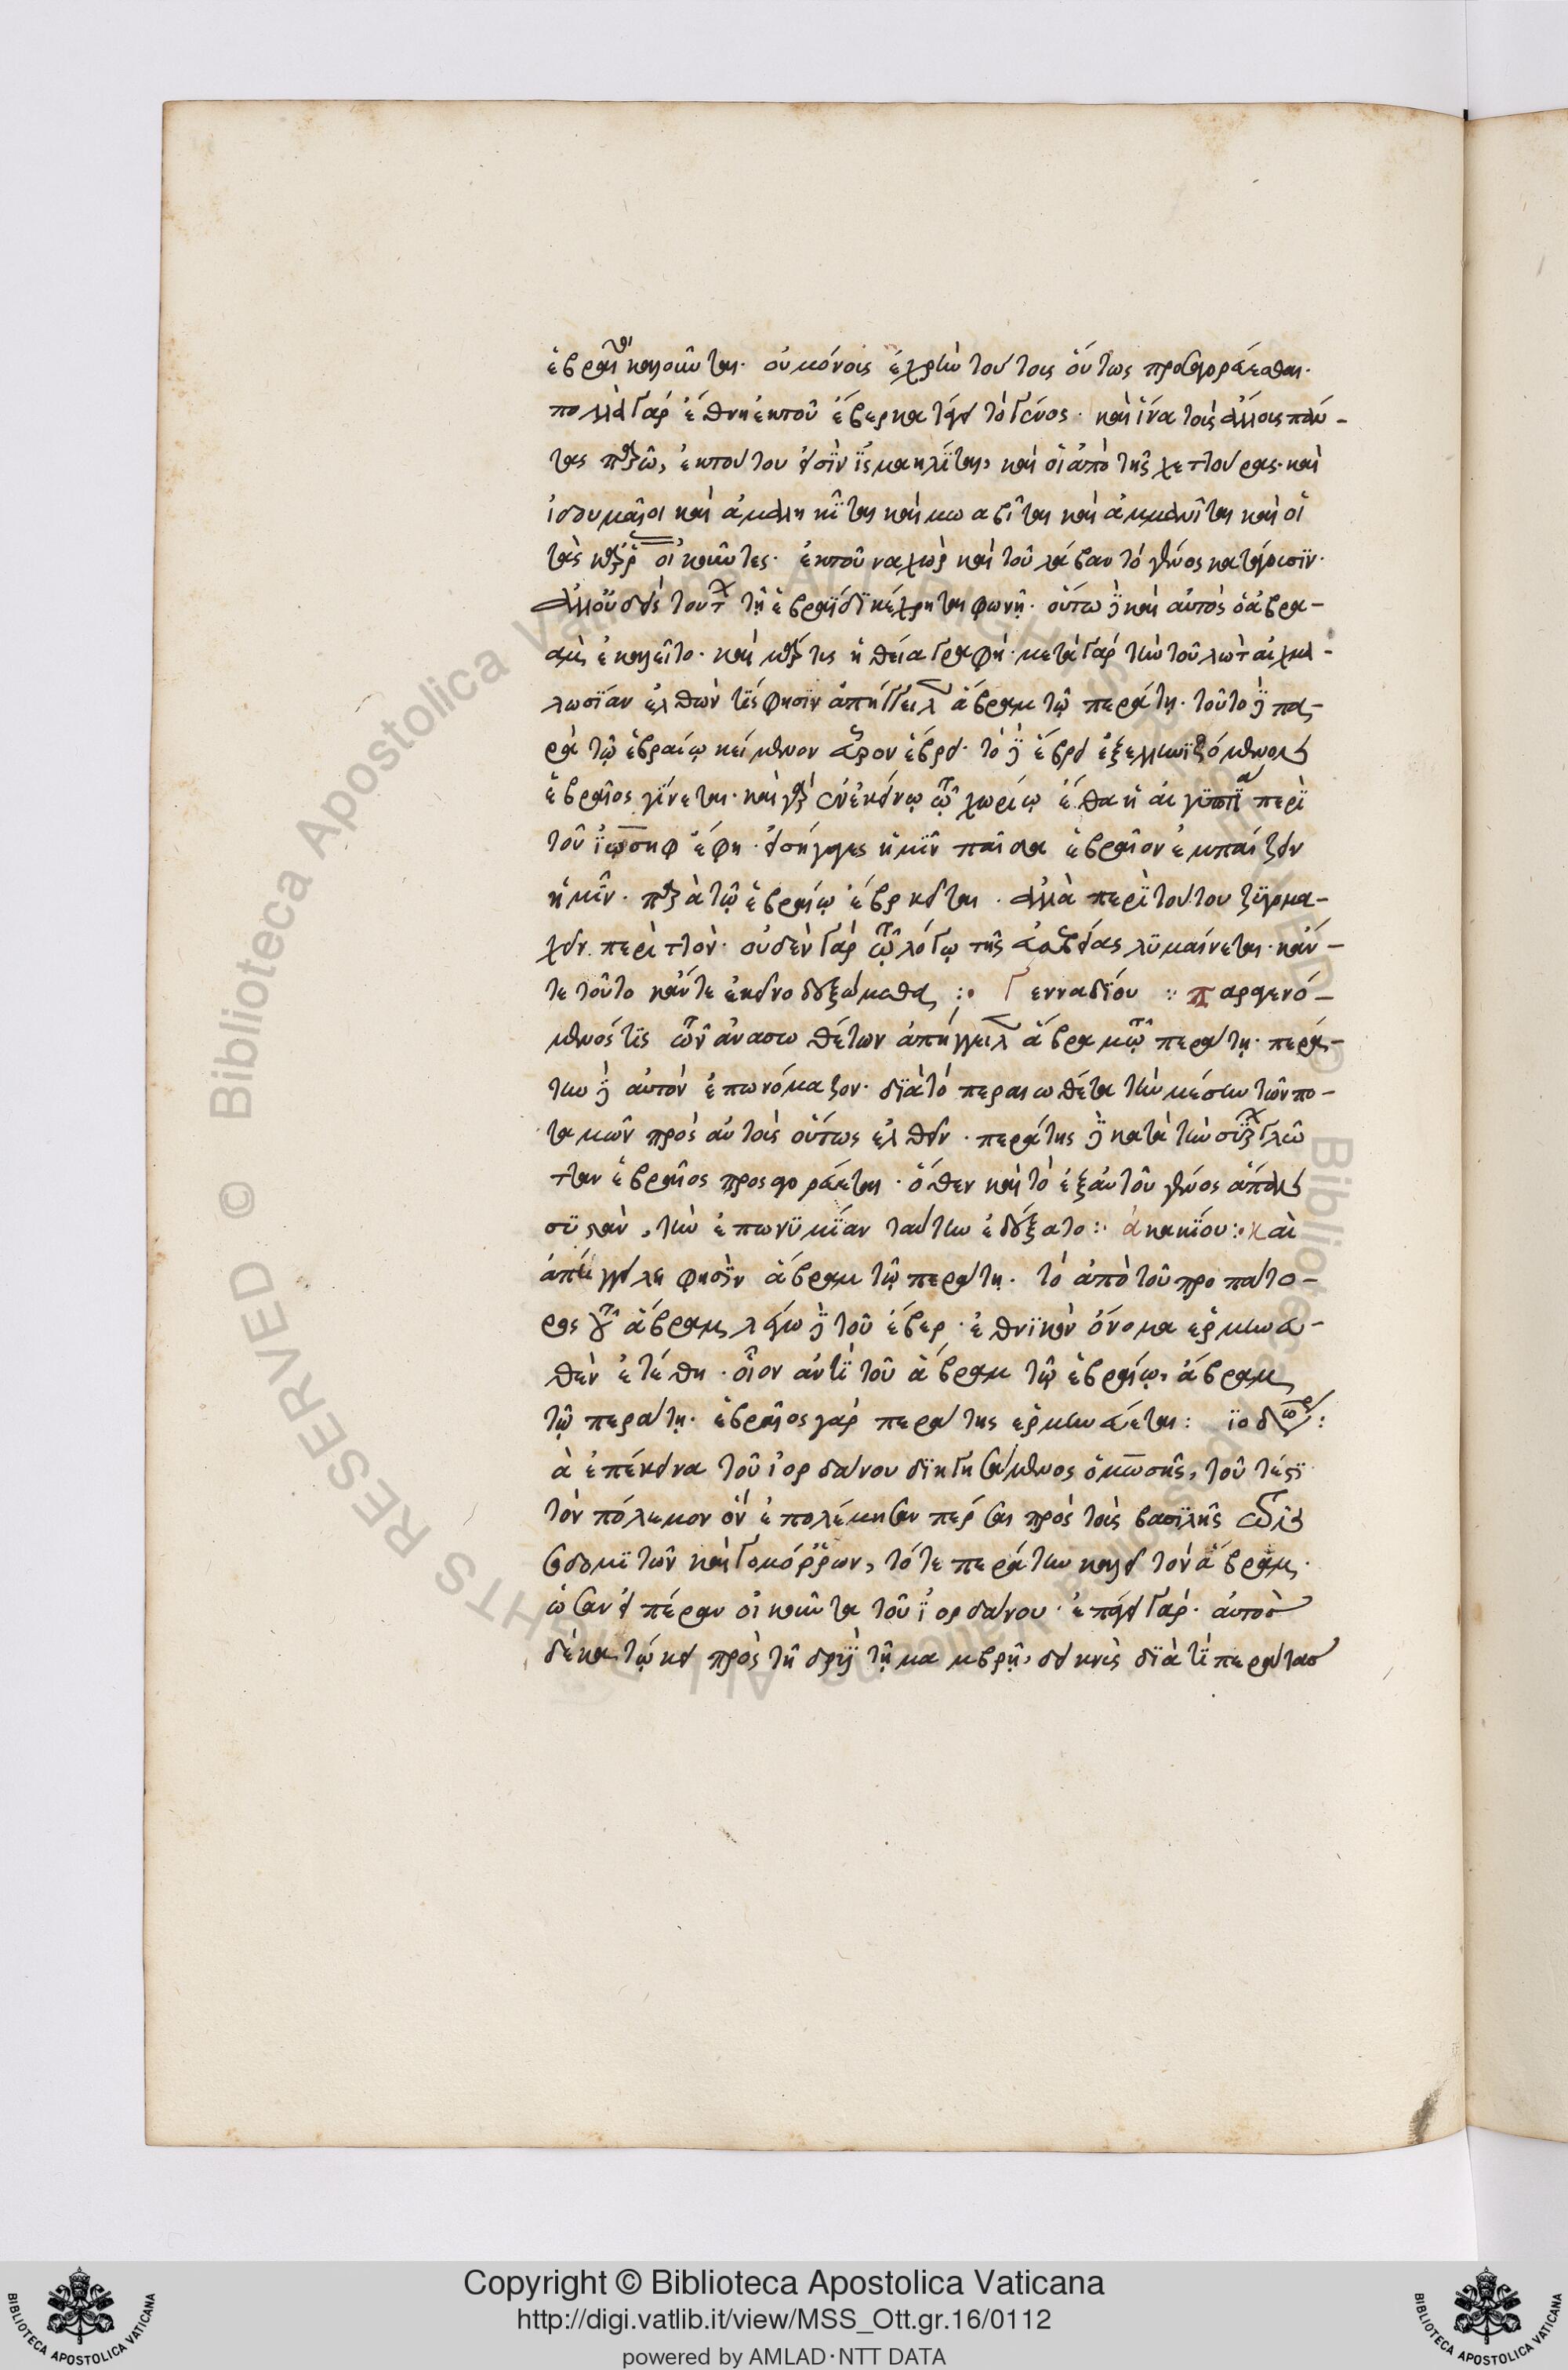 ἑβραῖοι καλοῦνται. οὐ μόνοις ἐχρῆν τούτοις οὕτως προσαγορεύεσθαι.
πολλὰ γὰρ ἔθνη ἐκ τοῦ ἕβερ κατάγει τὸ γένος. καὶ ἵνα τοὺς ἄλλους πάν-
τας παρῶ, ἐκ τούτου εἰσὶν ἰσμαηλῖται, καὶ οἱ ἀπὸ τῆς χεττούρας. καὶ
ἰδουμαῖοι καὶ ἀμαληκῖται καὶ μωαβῖται καὶ ἀμμανῖται καὶ οἱ
τὰς οἰκοῦντες. ἐκ τοῦ ναχὼρ καὶ τοῦ λάβαν τὸ γένος κατάγουσιν.
ἀλλ' οὐδεὶς τούτων τῇ ἑβραΐδι κέχρηται φωνῇ. οὕτω δὲ καὶ αὐτὸς ὁ ἀβρα-
ὰμ ἐκαλεῖτο. καὶ μάρτυς ἡ θεία γραφή. μετὰ γὰρ τὴν τοῦ λὼτ αἰχμα-
λωσίαν ἐλθών τις φησὶν ἀπήγγειλεν ἄβραμ τῷ περάτῃ. τοῦτο δὲ πα-
ρὰ τῷ ἑβραίῳ κείμενον εὗρον ἑβρεί. τὸ δὲ ἑβρεὶ ἐξελληνιζόμενον
ἑβραῖος γίνεται. καὶ γὰρ ἐν ἐκείνῳ τῷ χωρίῳ ἔνθα ἡ αἰγυπτία περὶ
τοῦ ἰωσὴφ ἔφη. εἰσήγαγες ἡμῖν παῖδα ἑβραῖον ἐμπαίζειν
ἡμῖν. παρὰ τῷ ἑβραίῳ ἑβρ κεῖται. ἀλλὰ περὶ τούτου ζυγομα-
χεῖν περιττόν. οὐδὲν γὰρ τῷ λόγῳ τῆς εὐσεβείας λυμαίνεται. κἄν-
τε τοῦτο κἄντε ἐκεῖνο δεξώμεθα :· Γενναδίου :: παραγενό-
μενός τις τῶν ἀνασωθέντων ἀπήγγειλεν ἄβραμ τῷ περάτῃ. περά-
την δὲ αὐτὸν ἐπωνόμαζον. διὰ τὸ περαιωθέντα τὴν μέσην τῶν πο-
ταμῶν πρὸς αὐτοὺς οὕτως ἐλθεῖν. περάτης δὲ κατὰ τὴν σύρων γλῶ
τταν ἑβραῖος προσαγορεύεται. ὅθεν καὶ τὸ ἐξ αὐτοῦ γένος ἅπαν
συνὰν, τὴν ἐπωνυμίαν ταύτην ἐδέξατο :· ἀκακίου :· καὶ
ἀπήγγειλε φησὶν ἄβραμ τῷ περάτῃ. τὸ ἀπὸ τοῦ προπάτο-
ρος τοῦ ἄβραμ, λέγω δὲ τοῦ ἕβερ. ἐθνικὸν ὄνομα ἑρμηνευ-
θὲν ἐτέθη. οἷον ἀντὶ τοῦ ἄβραμ τῷ ἑβραίῳ, ἄβραμ
τῷ περάτῃ. ἑβραῖος γὰρ περάτης ἑρμηνεύεται : ϊοδώρ :
ὰ ἐπέκεινα τοῦ ἰορδάνου διηγησάμενος ὁ μωσῆς, τουτέστι
τὸν πόλεμον ὃν ἐπολέμησαν πέρσαι πρὸς τοὺς βασιλῆς
σοδομιτῶν καὶ γομόρρων, τότε περάτην καλεῖ τὸν ἄβραμ.
ὡσανεὶ πέραν οἰκοῦντα τοῦ ἰορδάνου. ἐπάγει γάρ. αὐτὸς
δὲ κατῴκει πρὸς τῇ δρυῒ τῇ μαμβρῇ, δεικνὺς διὰ τί περάτας